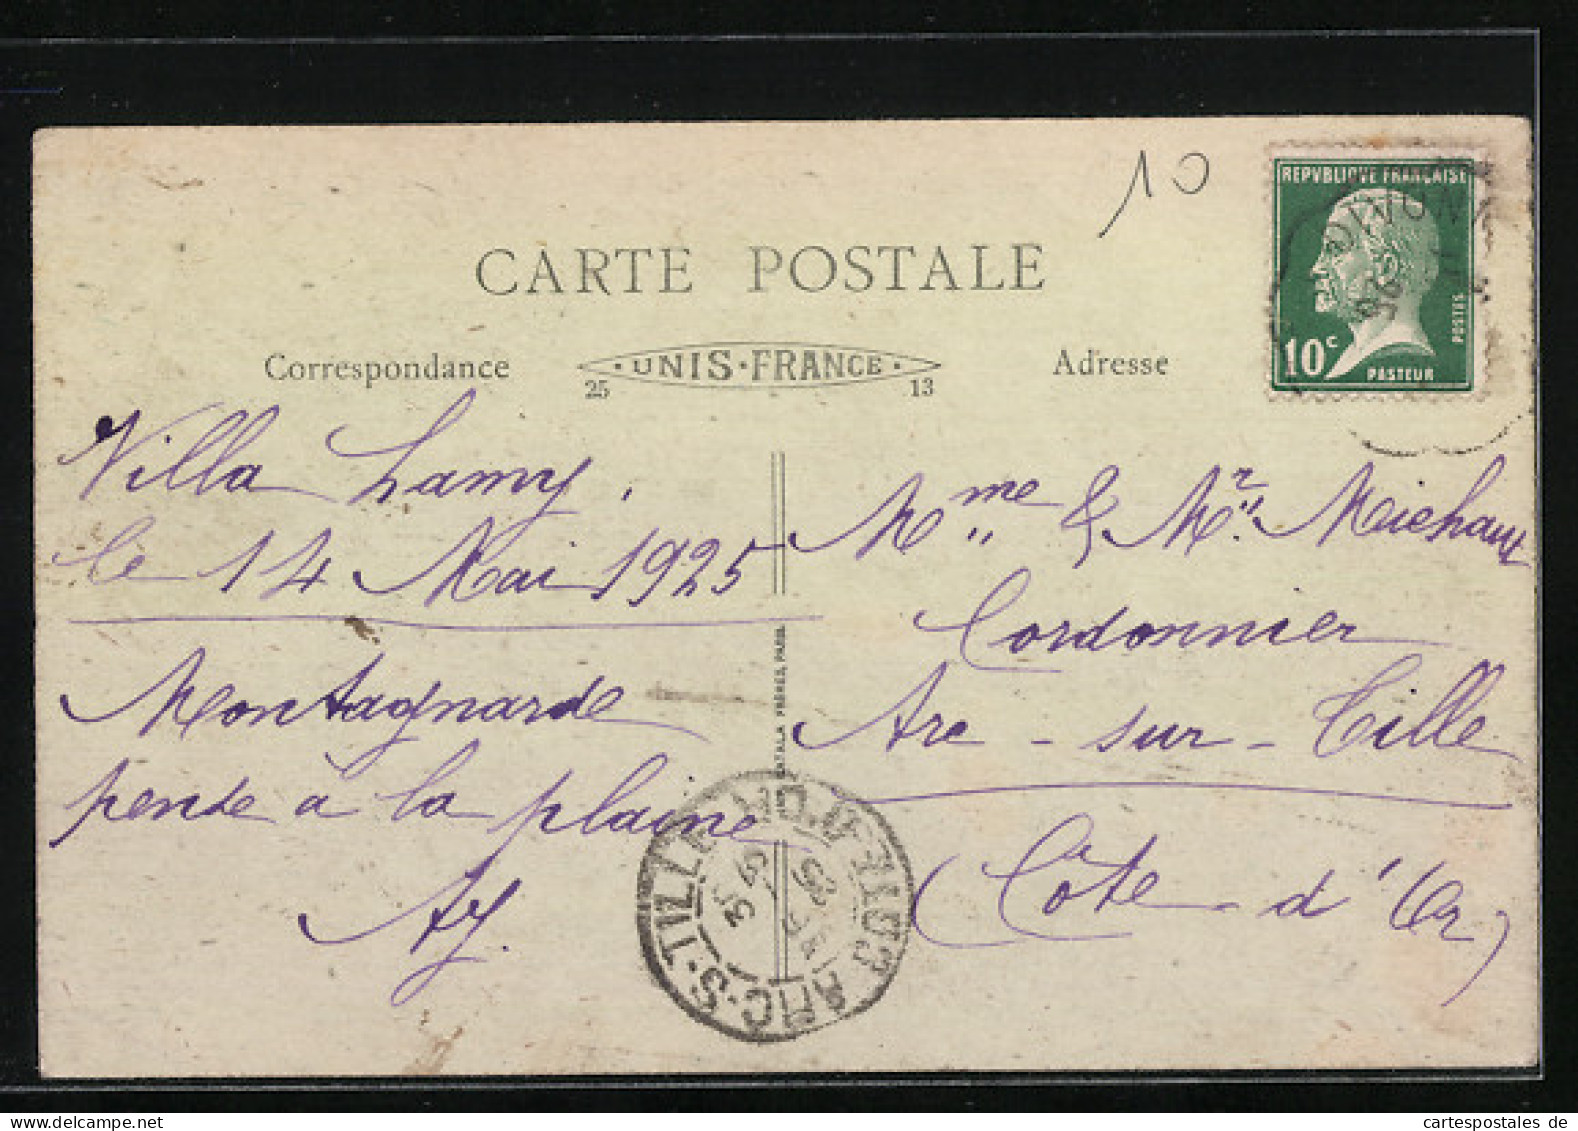 10
REPVBLIQVE FRANÇAISE
10c
POSTES
PASTEUR
CARTE POSTALE
Correspondance
· UNIS · FRANCE ·
25 13
Adresse
Villa Lamy,
le 14 Mai 1925
Montagnarde
pense à la plaine
Ay.
CATALA FRÈRES, PARIS
Mme & Mr Meichaux
Cordonnier
Arc-sur-Tille
(Côte-d'Or)
ARC-S-TILLE
CÔTE-D'OR
25
cartespostales de